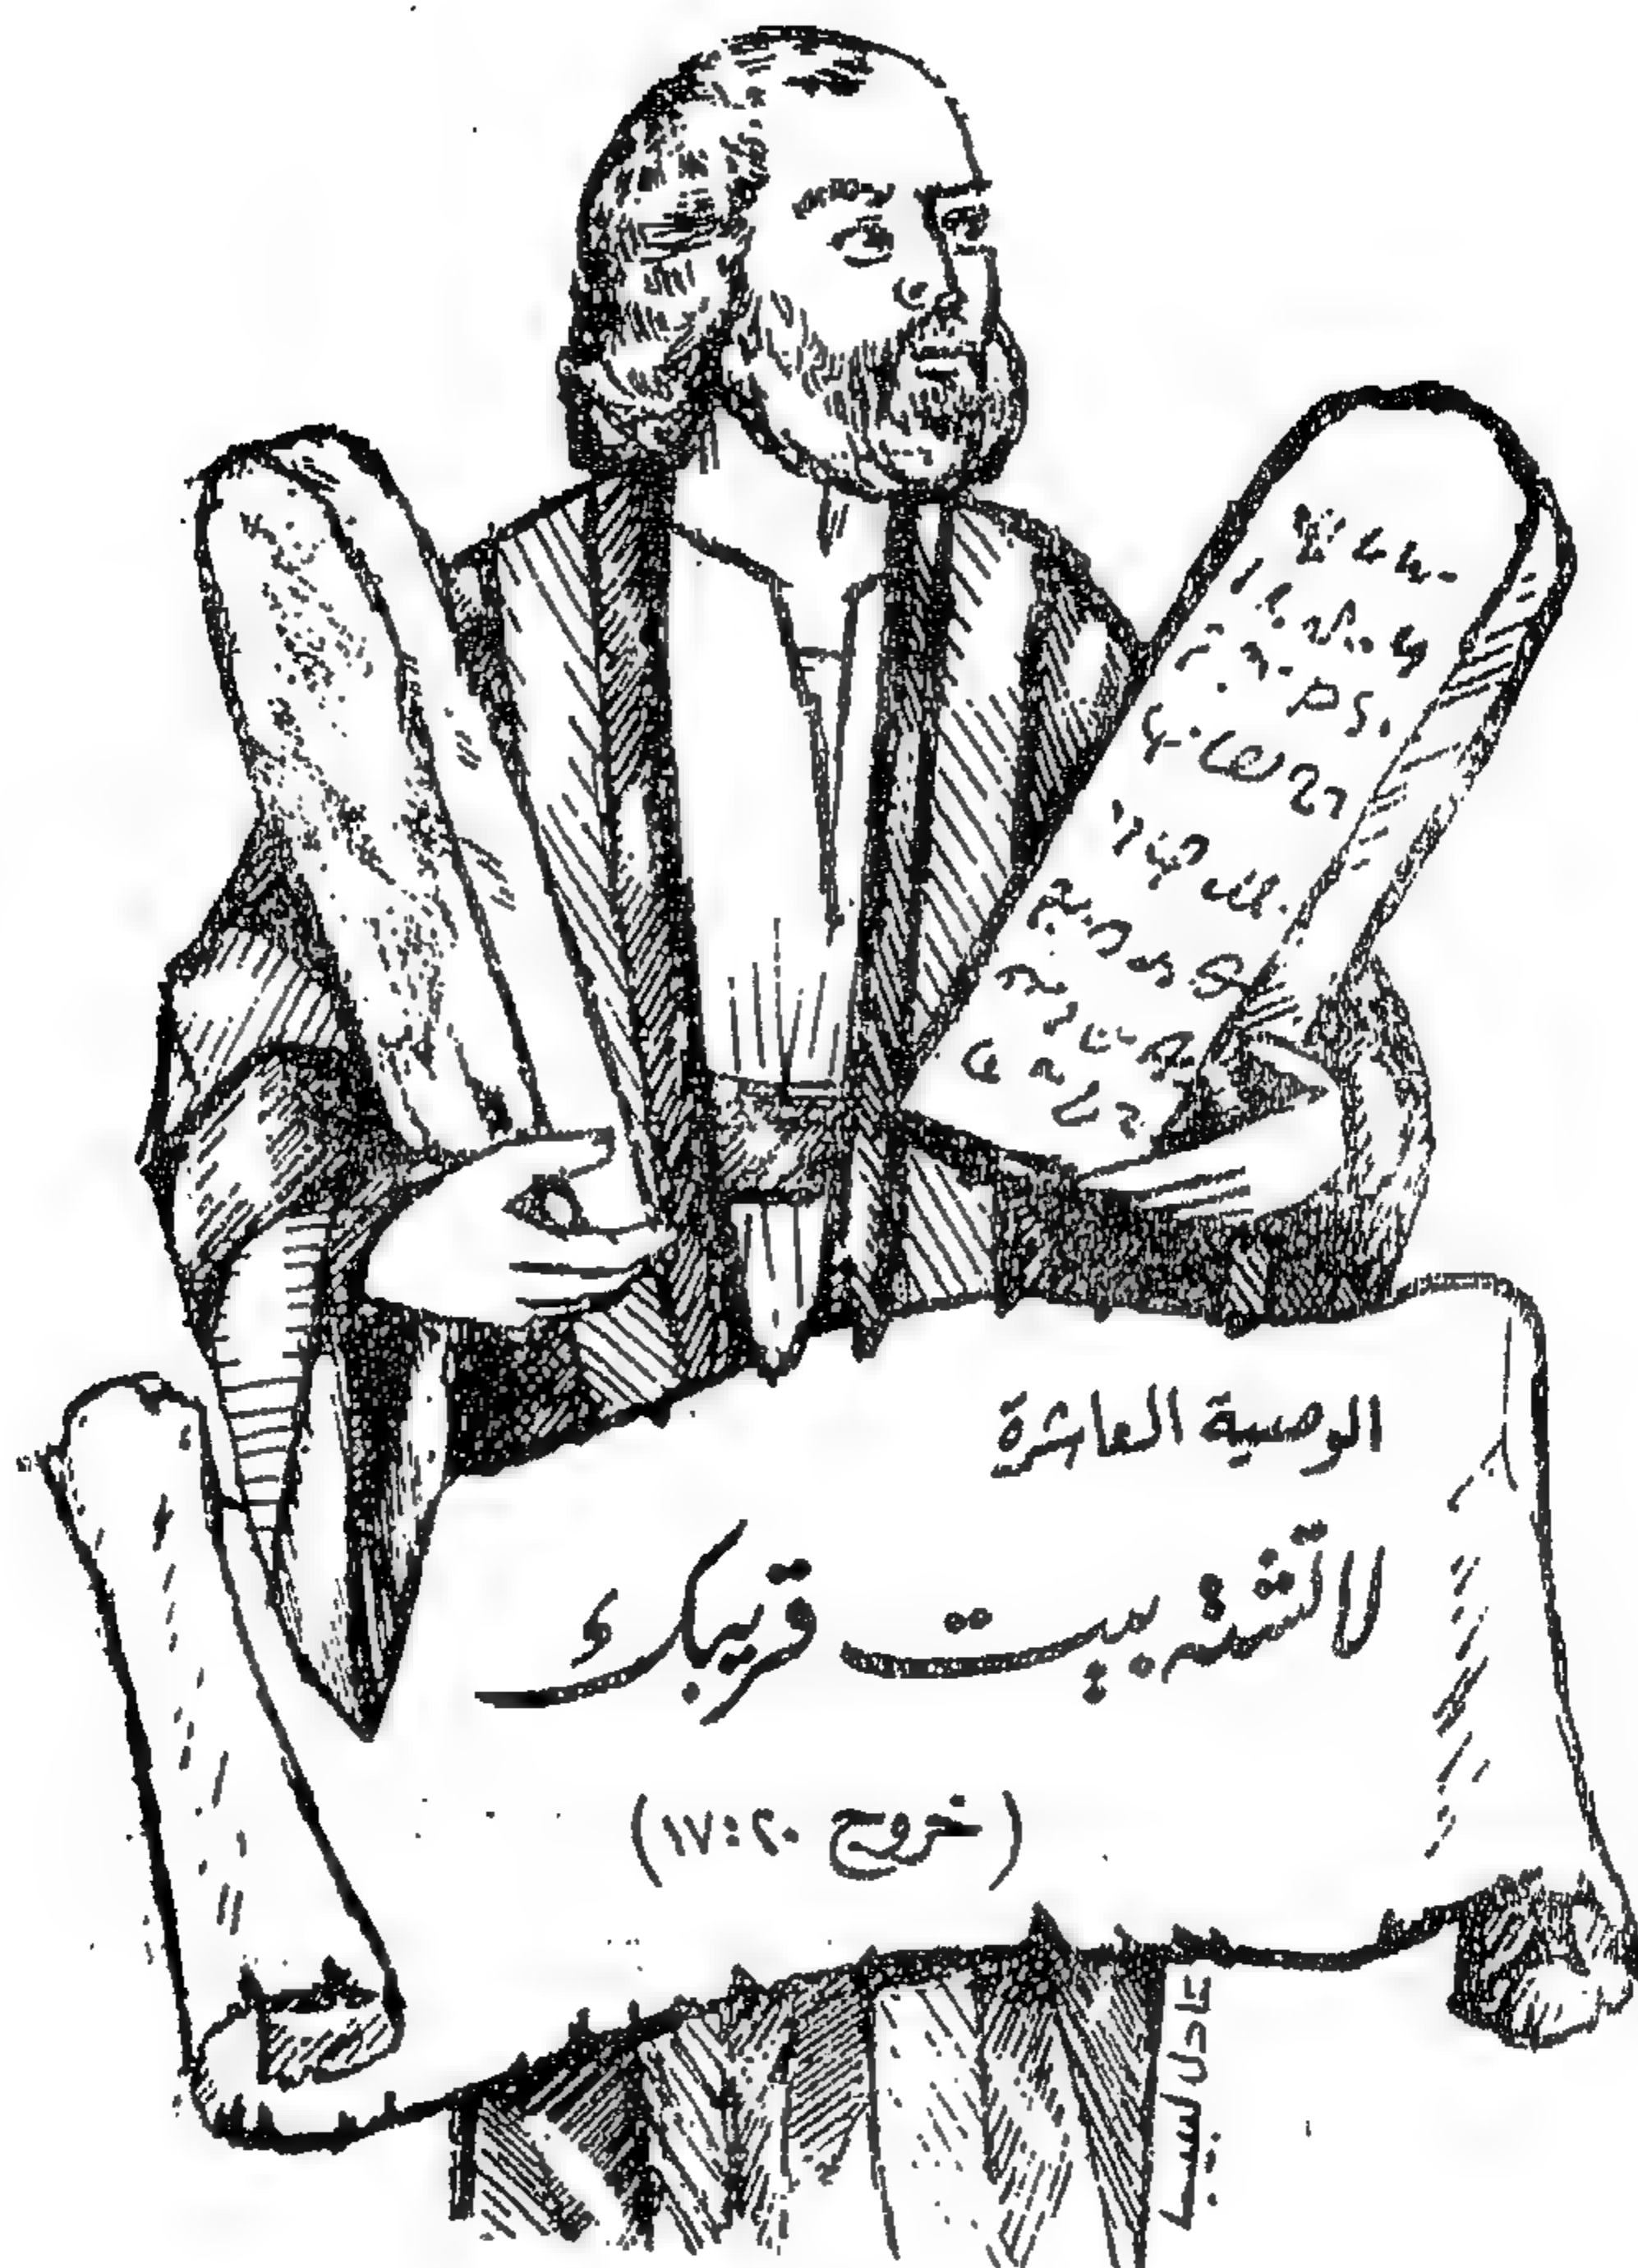 الوصية العاشرة
لا تَشته بيت قريبك
(خروج ٢٠:١٧)
عادل لبيب